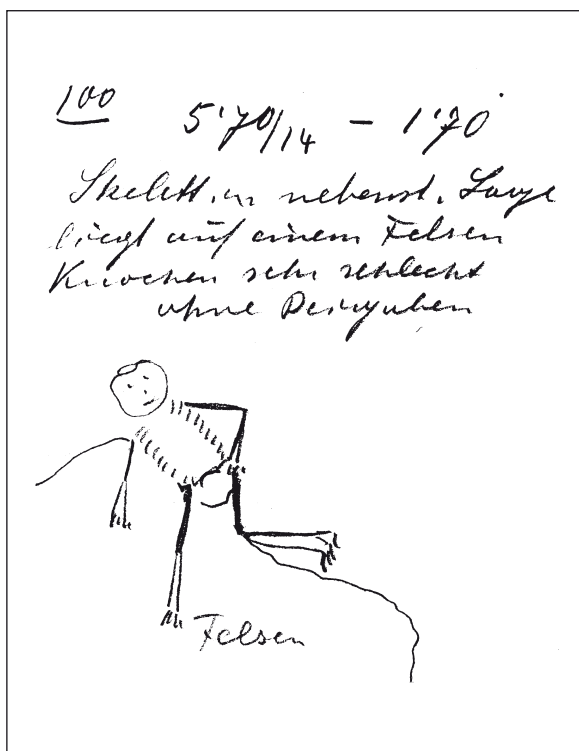 100
5'70/14 - 1'70
Skelett in nebenst. Lage
liegt auf einem Felsen
Knochen sehr schlecht
ohne Beigaben
Felsen